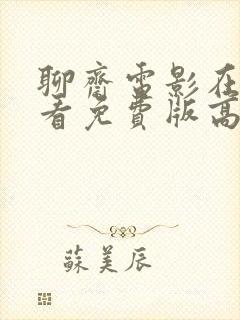 聊齋電影在
看免費版高
蘇美辰